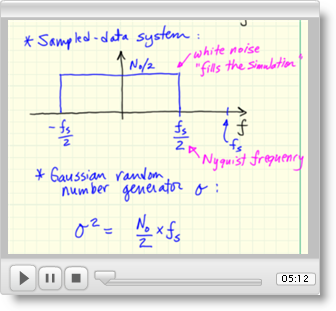 * Sampled-data system :
white noise
"fills the simulation"
N₀/2
f
- fs/2
fs/2
fs
Nyquist frequency
* Gaussian random
number generator σ :
σ² = N₀/2 × fs
05:12